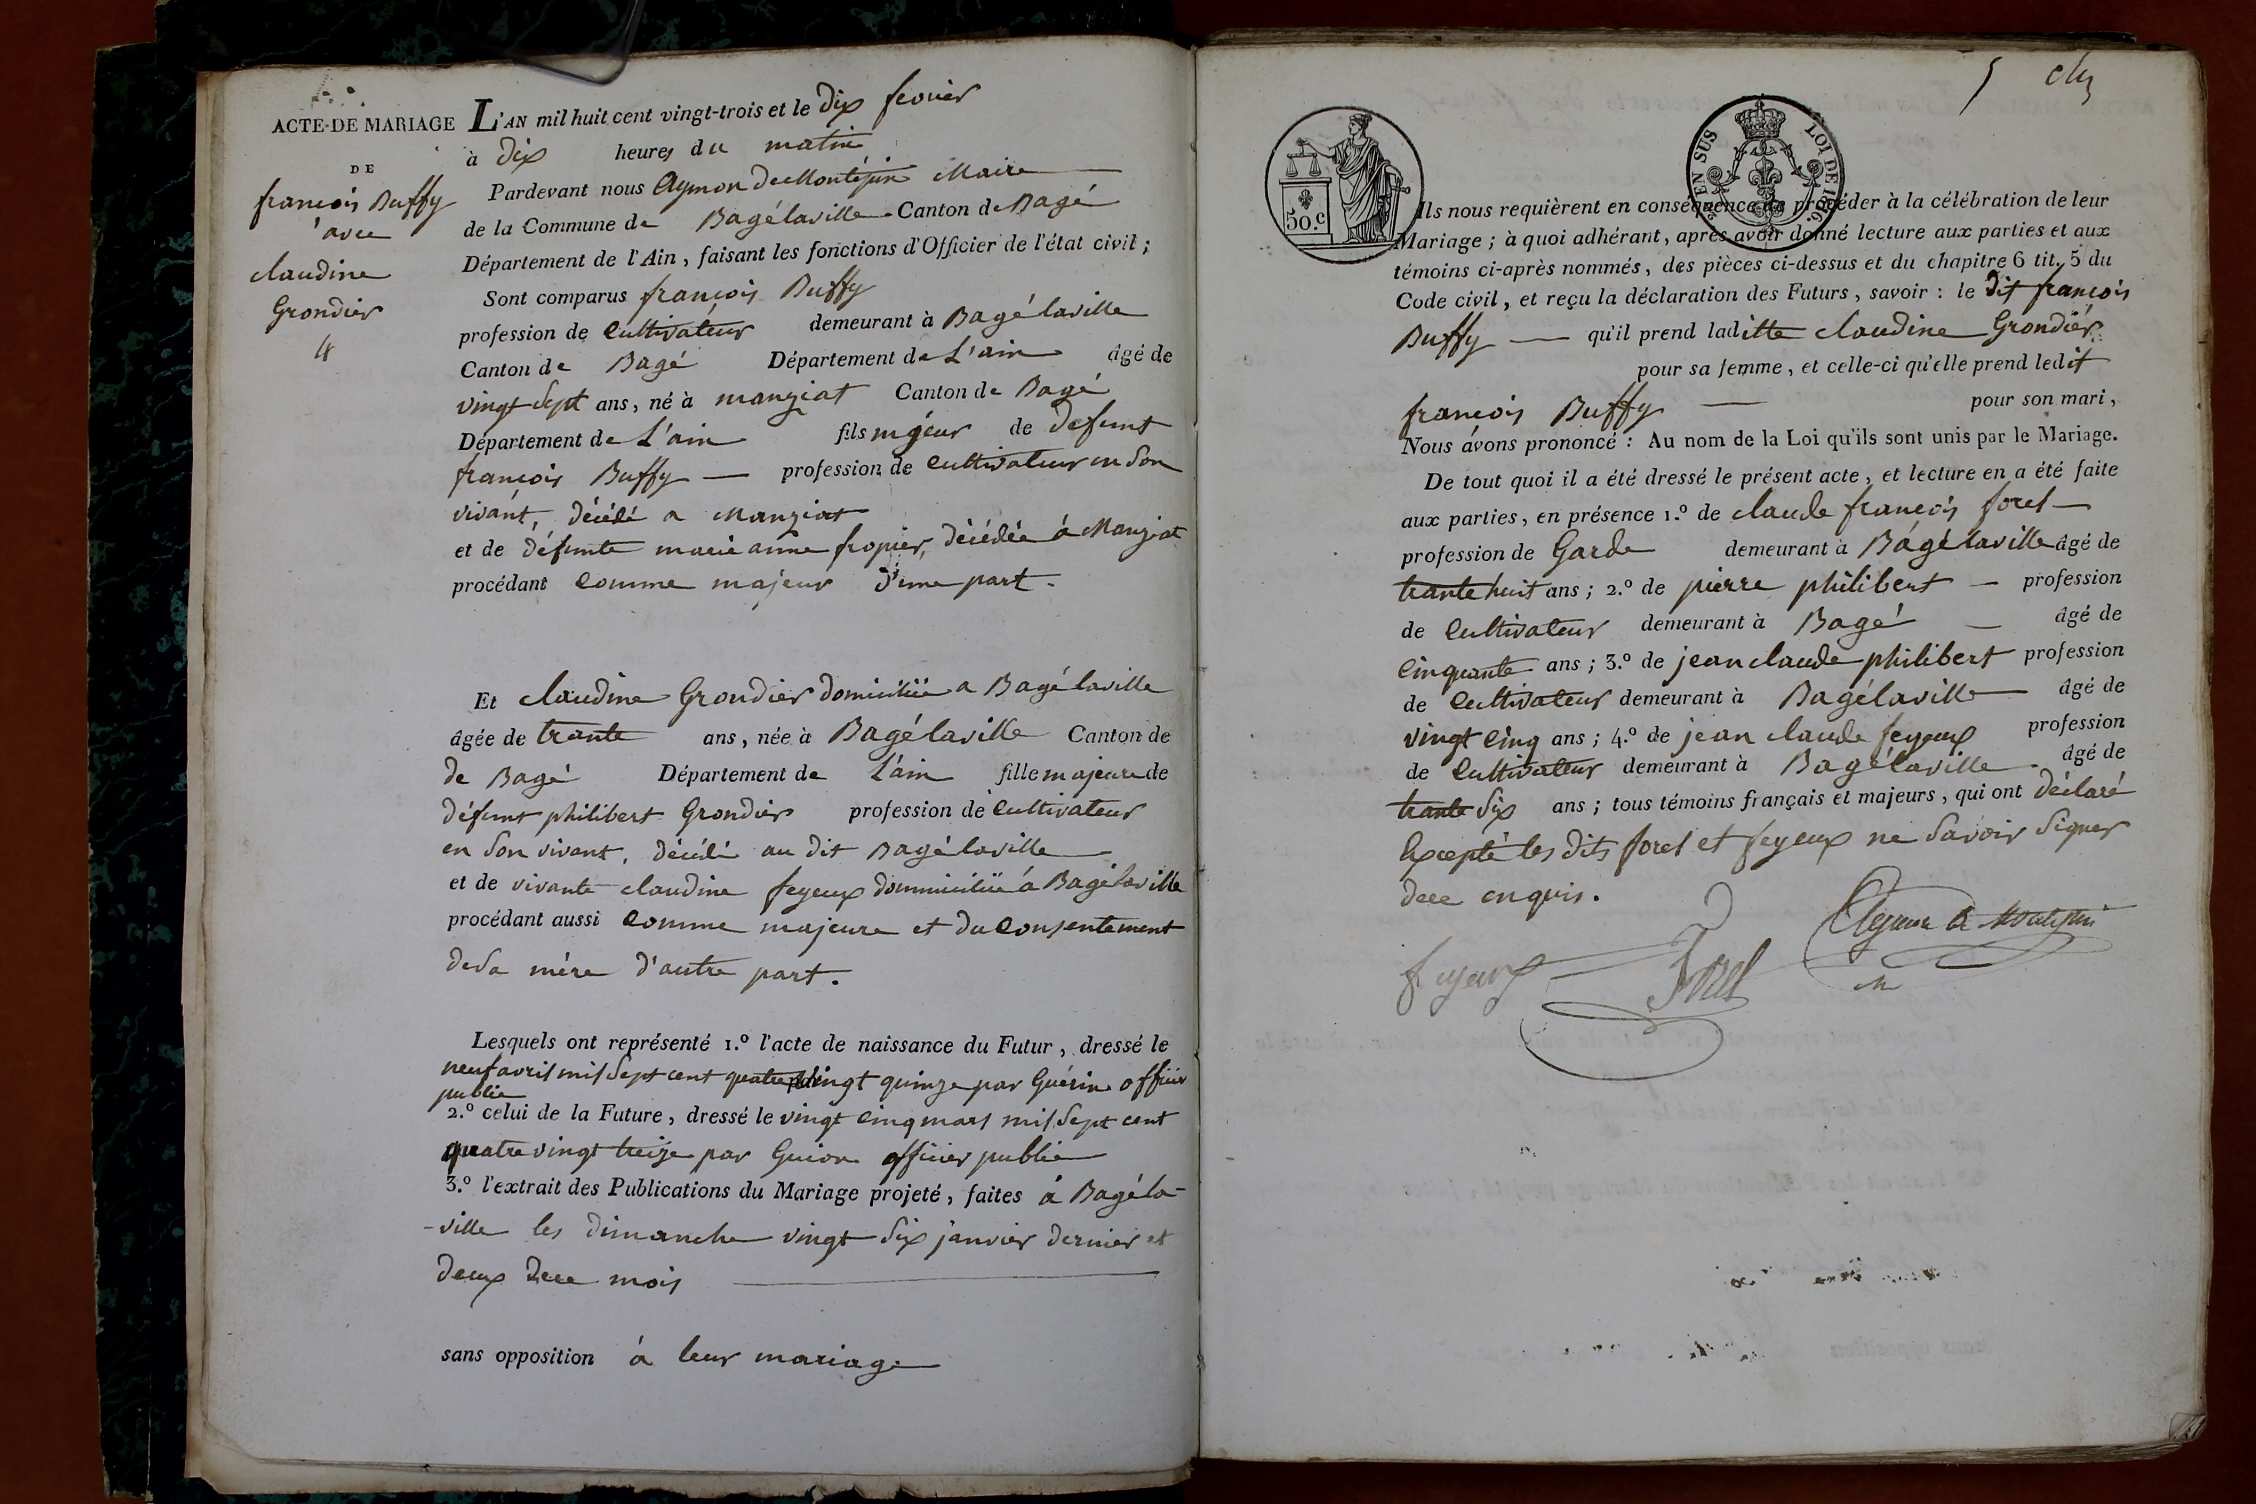 ACTE DE MARIAGE
DE
françois Buffy
avec
claudine
Grondier
4
L'AN mil huit cent vingt-trois et le dix fevrier
à dix heures du matin
Pardevant nous Aymon De Montépin Maire
de la Commune de Bagélaville Canton de Bagé
Département de l'Ain, faisant les fonctions d'Officier de l'état civil;
Sont comparus françois Buffy
profession de Cultivateur demeurant à Bagélaville
Canton de Bagé Département de L'ain âgé de
vingt Sept ans, né à manziat Canton de Bagé
Département de L'ain fils majeur de Defunt
françois Buffy — profession de Cultivateur en Son
vivant, décédé a Manziat
et de défunte marie anne fropier, décédée á Manziat
procédant Comme majeur d'une part.
Et claudine Grondier domiciliée a Bagélaville
âgée de trante ans, née à Bagélaville Canton de
de Bagé Département de L'ain fille majeure de
défunt philibert Grondier profession de Cultivateur
en Son vivant, décédé au dit Bagélaville
et de vivante claudine feyeux dommiciliée á Bagélaville
procédant aussi Comme majeure et du Consentement
de Sa mére d'autre part.
Lesquels ont représenté 1.º l'acte de naissance du Futur, dressé le
neuf avril mil Sept cent quatre vingt quinze par Guérin officier
public
2.º celui de la Future, dressé le vingt Cinq mars mil Sept cent
quatre vingt treize par Guion officier public
3.º l'extrait des Publications du Mariage projeté, faites á Bagéla-
-ville les dimanche vingt Six janvier dernier et
deux de ce mois
sans opposition á leur mariage
5 cinq
50.c
EN SUS LOI DE 1816.
Ils nous requièrent en conséquence de procéder à la célébration de leur
Mariage; à quoi adhérant, après avoir donné lecture aux parties et aux
témoins ci-après nommés, des pièces ci-dessus et du chapitre 6 tit. 5 du
Code civil, et reçu la déclaration des Futurs, savoir: le dit françois
Buffy — qu'il prend laditte claudine Grondiér
pour sa femme, et celle-ci qu'elle prend ledit
françois Buffy — pour son mari,
Nous avons prononcé: Au nom de la Loi qu'ils sont unis par le Mariage.
De tout quoi il a été dressé le présent acte, et lecture en a été faite
aux parties, en présence 1.º de claude françois forel —
profession de Garde demeurant à Bagélaville âgé de
trante huit ans; 2.º de pierre philibert — profession
de Cultivateur demeurant à Bagé — âgé de
Cinquante ans; 3.º de jean claude philibert profession
de Cultivateur demeurant à Bagélaville âgé de
vingt Cinq ans; 4.º de jean claude feyeux profession
de Cultivateur demeurant à Bagélaville âgé de
trante Six ans; tous témoins français et majeurs, qui ont déclaré
Excepté les dits forel et feyeux ne Savoir Signer
de ce enquis.
feyeux Forel Aymon De Montépin
m